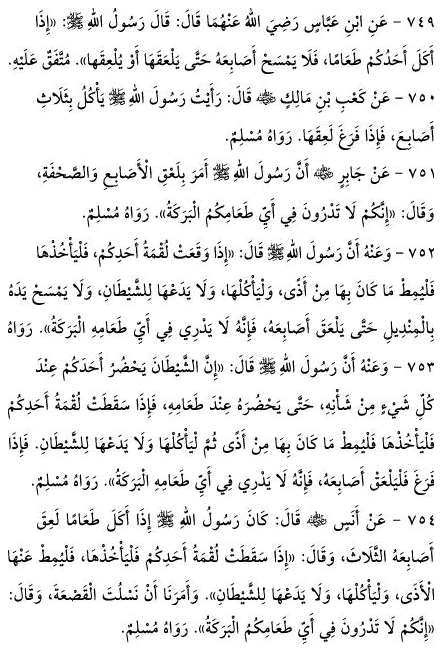 ٧٤٩ - عَنِ ابْنِ عَبَّاسٍ رَضِيَ اللهُ عَنْهُمَا قَالَ: قَالَ رَسُولُ اللهِ ﷺ: «إِذَا
أَكَلَ أَحَدُكُمْ طَعَامًا، فَلَا يَمْسَحْ أَصَابِعَهُ حَتَّى يَلْعَقَهَا أَوْ يُلْعِقَها». مُتَّفَقٌ عَلَيْهِ.
٧٥٠ - عَنْ كَعْبِ بْنِ مَالِكٍ ﵁ قَالَ: رَأَيْتُ رَسُولَ اللهِ ﷺ يَأْكُلُ بِثَلَاثِ
أَصَابِعَ، فَإِذَا فَرَغَ لَعِقَهَا. رَوَاهُ مُسْلِمٌ.
٧٥١ - عَنْ جَابِرٍ ﵁ أَنَّ رَسُولَ اللهِ ﷺ أَمَرَ بِلَعْقِ الْأَصَابِعِ وَالصَّحْفَةِ،
وَقَالَ: «إِنَّكُمْ لَا تَدْرُونَ فِي أَيِّ طَعَامِكُمُ الْبَرَكَةُ». رَوَاهُ مُسْلِمٌ.
٧٥٢ - وَعَنْهُ أَنَّ رَسُولَ اللهِ ﷺ قَالَ: «إِذَا وَقَعَتْ لُقْمَةُ أَحَدِكُمْ، فَلْيَأْخُذْهَا
فَلْيُمِطْ مَا كَانَ بِهَا مِنْ أَذًى، وَلْيَأْكُلْهَا، وَلَا يَدَعْهَا لِلشَّيْطَانِ، وَلَا يَمْسَحْ يَدَهُ
بِالْمِنْدِيلِ حَتَّى يَلْعَقَ أَصَابِعَهُ، فَإِنَّهُ لَا يَدْرِي فِي أَيِّ طَعَامِهِ الْبَرَكَةُ». رَوَاهُ
٧٥٣ - وَعَنْهُ أَنَّ رَسُولَ اللهِ ﷺ قَالَ: «إِنَّ الشَّيْطَانَ يَحْضُرُ أَحَدَكُمْ عِنْدَ
كُلِّ شَيْءٍ مِنْ شَأْنِهِ، حَتَّى يَحْضُرَهُ عِنْدَ طَعَامِهِ، فَإِذَا سَقَطَتْ لُقْمَةُ أَحَدِكُمْ
فَلْيَأْخُذْهَا فَلْيُمِطْ مَا كَانَ بِهَا مِنْ أَذًى ثُمَّ لْيَأْكُلْهَا وَلَا يَدَعْهَا لِلشَّيْطَانِ. فَإِذَا
فَرَغَ فَلْيَلْعَقْ أَصَابِعَهُ، فَإِنَّهُ لَا يَدْرِي فِي أَيِّ طَعَامِهِ الْبَرَكَةُ». رَوَاهُ مُسْلِمٌ.
٧٥٤ - عَنْ أَنَسٍ ﵁ قَالَ: كَانَ رَسُولُ اللهِ ﷺ إِذَا أَكَلَ طَعَامًا لَعِقَ
أَصَابِعَهُ الثَّلَاثَ، وَقَالَ: «إِذَا سَقَطَتْ لُقْمَةُ أَحَدِكُمْ فَلْيَأْخُذْهَا، فَلْيُمِطْ عَنْهَا
الْأَذَى، وَلْيَأْكُلْهَا، وَلَا يَدَعْهَا لِلشَّيْطَانِ». وَأَمَرَنَا أَنْ نَسْلُتَ الْقَصْعَةَ، وَقَالَ:
«إِنَّكُمْ لَا تَدْرُونَ فِي أَيِّ طَعَامِكُمُ الْبَرَكَةُ». رَوَاهُ مُسْلِمٌ.